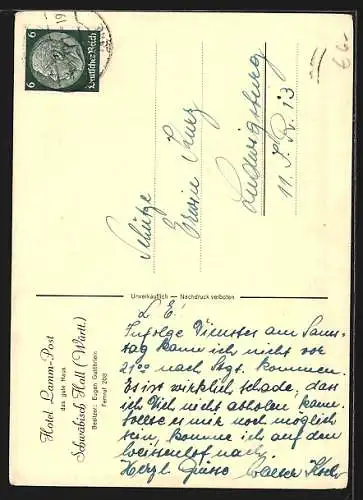 Hotel Lamm-Post
das gute Haus
Schwäbisch Hall (Württ.)
Besitzer: Eugen
Fernruf 268
Unverkäuflich — Nachdruck verboten
6 6
Deutsches Reich
Schütze
Erwin Kurz
Ludwigsburg
11. J. R. 13
L. E!
Infolge Dienstes am Sams-
tag kann ich nicht vor
21°° nach Stgt. kommen.
Es ist wirklich schade, dass
ich Dich nicht abholen kann.
Sollte es mir noch möglich
sein, komme ich auf den
nach.
Herzl. Grüsse